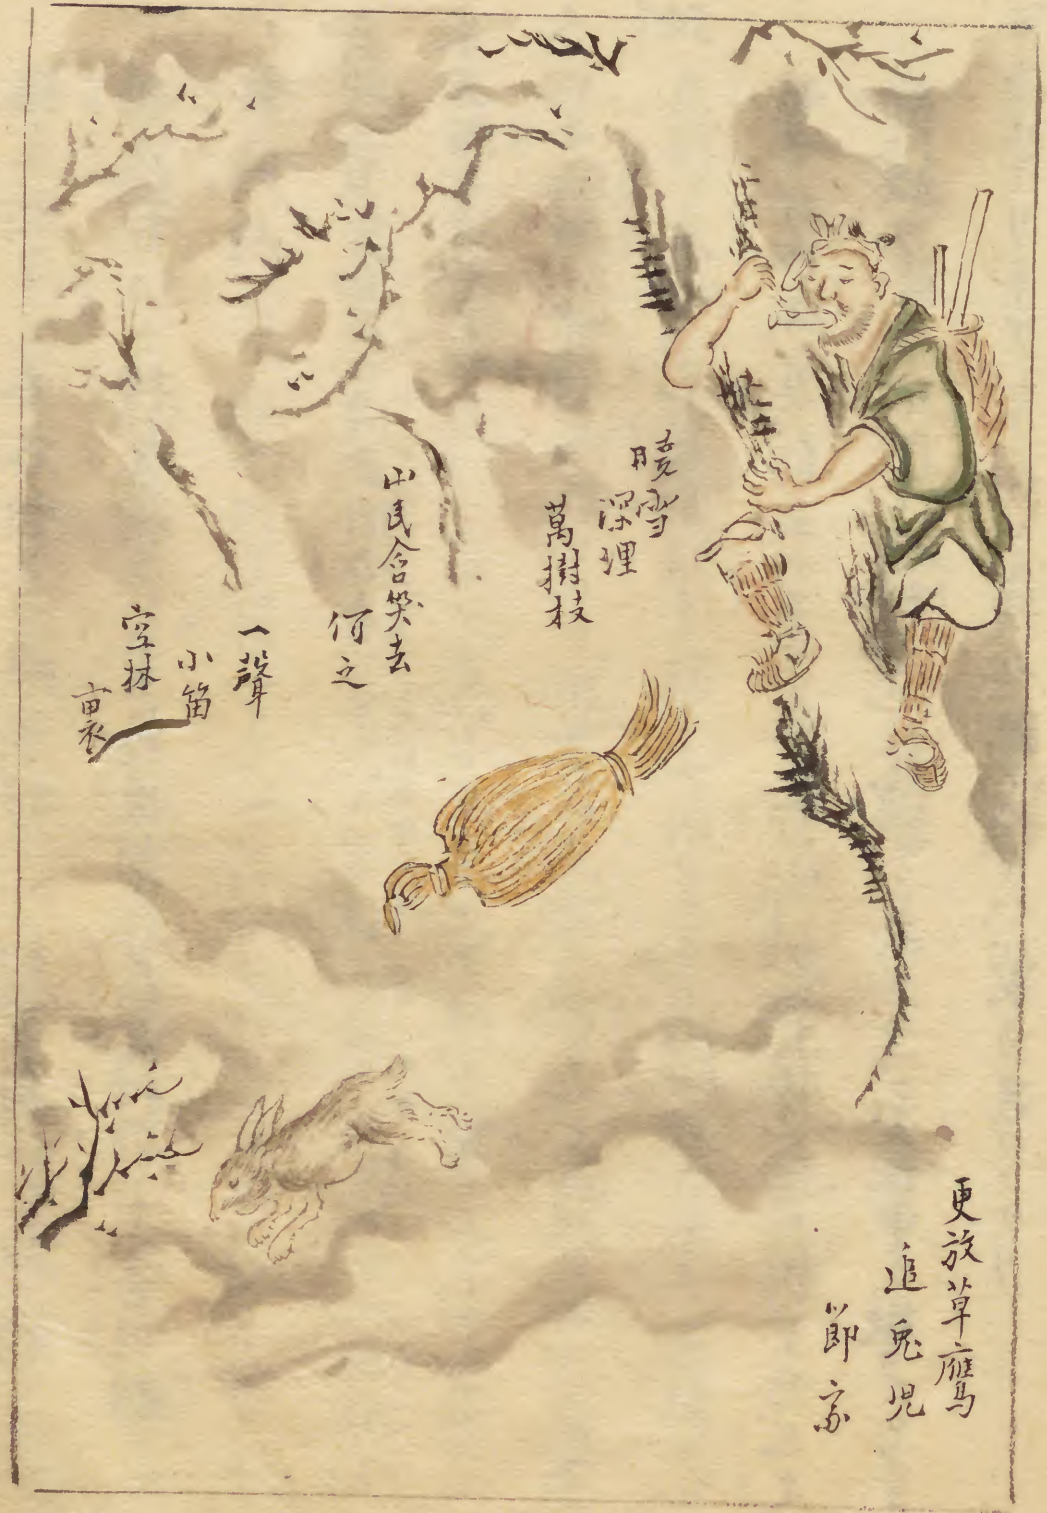 曉雪
深埋
萬樹枝
山民含笑去
何之
一聲
小笛
空林
裏
更放草鷹
追兎児
節斎